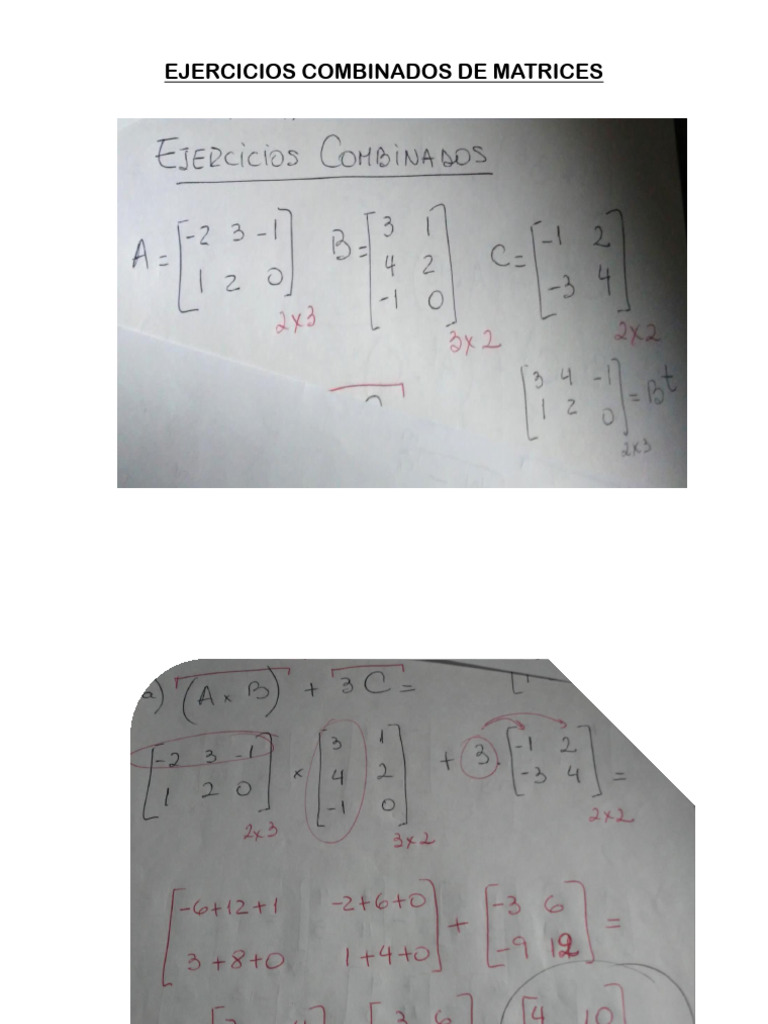 EJERCICIOS COMBINADOS DE MATRICES
EJERCICIOS COMBINADOS
A = [-2 3 -1
1 2 0] 2x3
B = [3 1
4 2
-1 0] 3x2
C = [-1 2
-3 4] 2x2
[3 4 -1
1 2 0] 2x3 = Bt
a) (A x B) + 3C =
[-2 3 -1
1 2 0] 2x3 x [3 1
4 2
-1 0] 3x2 + 3. [-1 2
-3 4] 2x2 =
[-6+12+1 -2+6+0
3+8+0 1+4+0] + [-3 6
-9 12] =
[4 10]